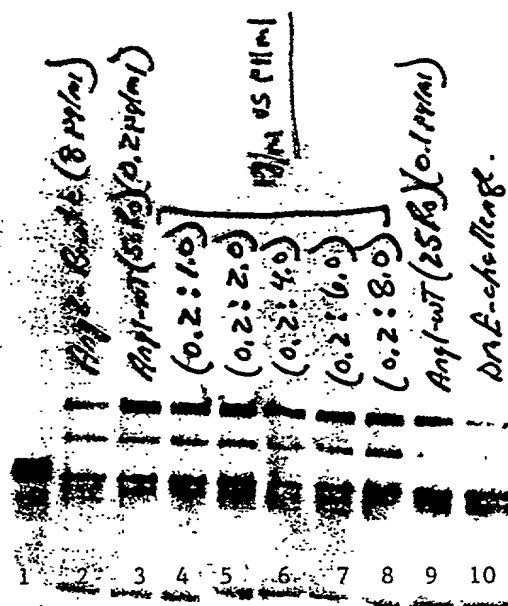 (8 µg/ml)
Ang1-WT (50 Ro) (0.2 µg/ml)
µg/ml vs µg/ml
(0.2 : 1.0)
(0.2 : 2.0)
(0.2 : 4.0)
(0.2 : 6.0)
(0.2 : 8.0)
Ang1-WT (25 Ro) (0.1 µg/ml)
DME-challenge.
1 2 3 4 5 6 7 8 9 10